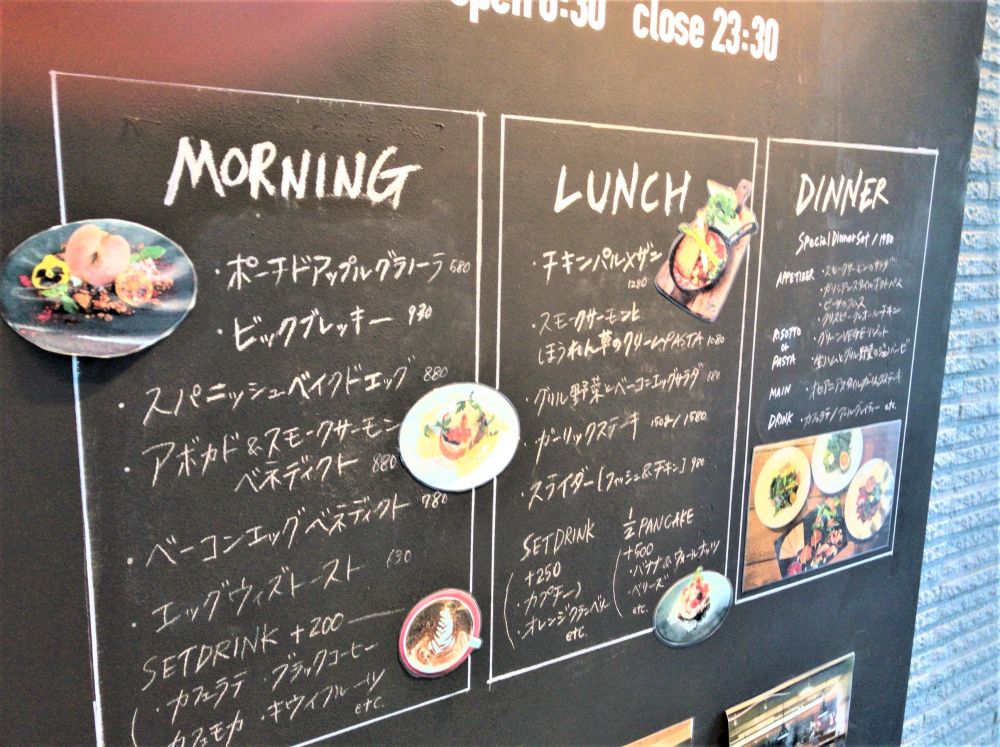 open 6:30 close 23:30
MORNING
・ポーチドアップルグラノーラ 580
・ビックブレッキー 930
・スパニッシュベイクドエッグ 880
・アボカド&スモークサーモン
ベネディクト 880
・ベーコンエッグベネディクト 780
・エッグウィズトースト
SETDRINK +200
(・カフェラテ ・ブラックコーヒー
・カフェモカ ・キウイフルーツ
etc.
LUNCH
・チキンパルメザン
1280
・スモークサーモンと
ほうれん草のクリームPASTA 1080
・グリル野菜とベーコンエッグサラダ
・ガーリックステーキ 150g/1580
・スライダー[フィッシュ&チキン] 980
SETDRINK
+250
(・カプチーノ
・オレンジクランベリー
etc.
1/2 PANCAKE
+500
(・バナナ&ウォールナッツ
・ベリーズ
etc.
DINNER
Special Dinner Set / 1980
APPETIZER ・スモークサーモンのサラダ
RISOTTO
or
PASTA
MAIN
DRINK etc.